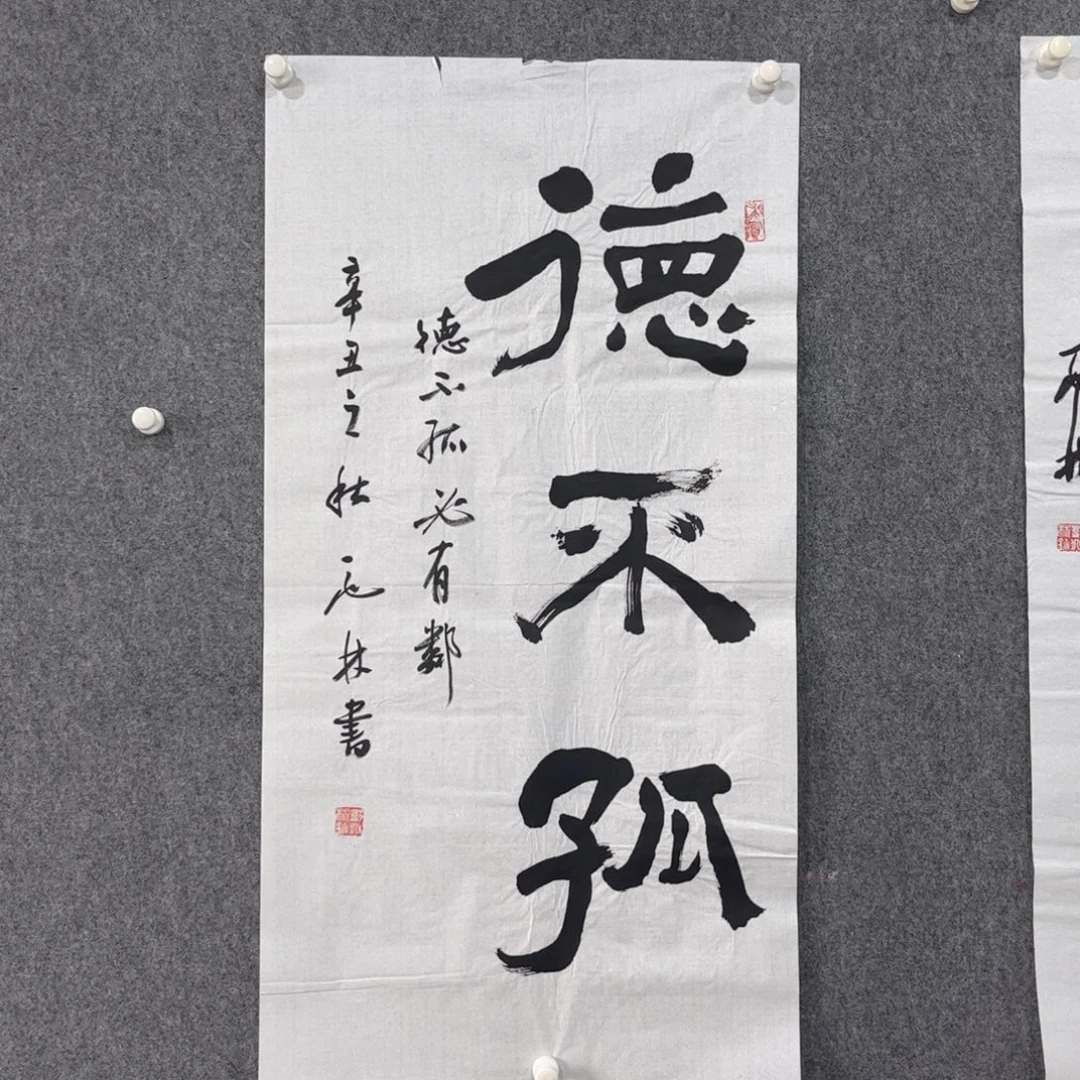 德不孤
德不孤必有鄰
辛丑之秋志林書